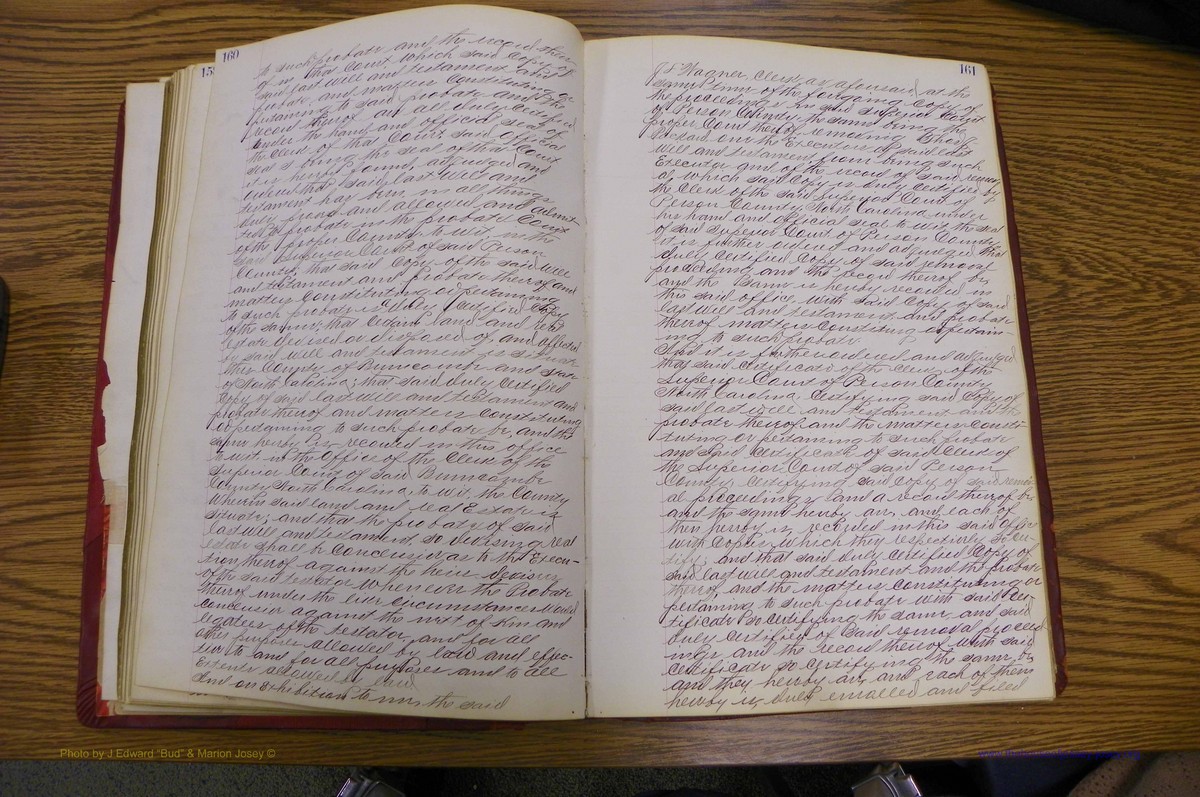 160
to such probate and the record there
of in that Court which said Copy of
said last will and testament and
probate, and matters Constituting or
pertaining to said probate and the
record thereof are all duly certified
under the hand and official seal of
the Clerk of that Court said official
seal being the seal of that Court
it is hereby found, adjudged and
ordered that said last will and
testament has been in all things
duly proven and allowed and admit-
ted to probate in the probate Court
of the proper County, to wit, in the
said Superior Court of said Person
County, that said Copy of the said will
and testament and probate thereof and
matters Constituting or pertaining
to such probate is a duly certified copy
of the same, that certain land and real
estate devised or disposed of and affected
by said will and testament is situate
in the County of Buncombe and State
of North Carolina; that said duly certified
Copy of said last will and testament and
probate thereof and matters constituting
or pertaining to such probate be, and the
same hereby is, recorded in this office
to wit in the Office of the Clerk of the
Superior Court of said Buncombe
County North Carolina, to wit, the County
wherein said land and real Estate is
situate; and that the probate of said
last will and testament so devising real
estate shall be conclusive as to the Execu-
tion thereof against the heirs devisees
of the said testator whenever the Probate
thereof under the like circumstances would
be conclusive against the next of kin and
legatees of the testator, and for all
other purposes allowed by law and effec-
tive to and for all purposes and to all
Extents allowed by law
And on Exhibition to me, the said
161
J. L. Wagner, Clerk, as aforesaid, at the
same time of the foregoing Copy of
the proceedings in said Superior Court
of Person County, the same being the
proper Court thereof removing
as the Executors of said last
will and testament from being such
Executor and of the record of said removal
all which said Copy is duly certified by
the Clerk of the said Superior Court of
Person County, North Carolina under
his hand and official seal to wit the seal
of said Superior Court of Person County
it is further ordered and adjudged that
duly certified Copy of said removal
proceeding and the record thereof be
and the same is hereby recorded in
this said office with said Copy of said
last will and testament and probate
thereof matters Constituting or pertain-
ing to such probate.
And it is further ordered and adjudged
that said certificate of the Clerk of the
Superior Court of Person County
North Carolina, Certifying said Copy of
said last will and testament and the
probate thereof and the matters Consti-
tuting or pertaining to such probate
and said Certificate of said Clerk of
the Superior Court of said Person
County Certifying said Copy of said remov-
al proceedings and a record thereof be
and the same hereby are, and each of
them hereby is, recorded in this said office
with Copies which they respectively so cer-
tify; and that said duly certified Copy of
said last will and testament and the probate
thereof, and the matters Constituting or
pertaining to such probate with said Cer-
tificate so Certifying the same, and said
duly certified of said removal proceed-
ings and the record thereof with said
Certificate so Certifying the same, be
and they hereby are, and each of them
hereby is, duly enrolled and filed
Photo by J Edward "Bud" & Marion Josey ©